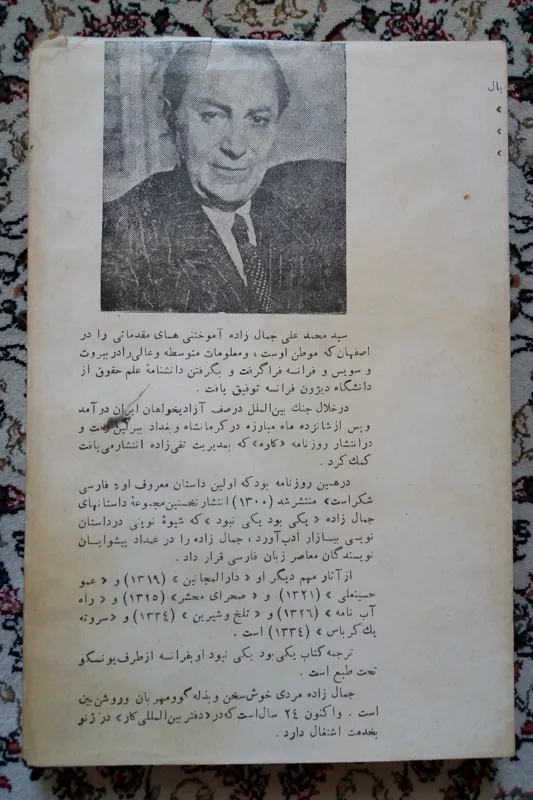 بال
»
›
›
سید محمد علی جمال زاده آموختنی های مقدماتی را در
اصفهان که موطن اوست ، ومعلومات متوسطه وعالی رادر بیروت
و سویس و فرانسه فراگرفت و بگرفتن دانشنامهٔ علم حقوق از
دانشگاه دیژون فرانسه توفیق یافت .
درخلال جنك بین‌الملل درصف آزادیخواهان ایران درآمد
وپس ازشانزده ماه مبارزه درکرمانشاه وبغداد ببرلین رفت و
درانتشار روزنامه «کاوه» که بمدیریت تقی‌زاده انتشارمی‌یافت
کمك کرد .
درهمین روزنامه بودکه اولین داستان معروف او« فارسی
شکر است» منتشرشد (۱۳۰۰) انتشار نخستین مجموعهٔ داستانهای
جمال زاده « یکی بود یکی نبود »که شیوهٔ نوینی درداستان
نویسی ببازار ادب‌آورد ، جمال زاده را در عداد پیشوایان
نویسندگان معاصر زبان فارسی قرار داد .
از آثار مهم دیگر او « دارالمجانین » (۱۳۱۹) و « عمو
حسینعلی » (۱۳۲۱) و « صحرای محشر» (۱۳۲۵) و « راه
آب نامه » (۱۳۲۶) و « تلخ وشیرین » (۱۳۳۴) و «سروته
یك کرباس » (۱۳۳۴) است .
ترجمه کتاب یکی بود یکی نبود او بفرانسه ازطرف یونسکو
تحت طبع است .
جمال زاده مردی خوش سخن و بذله گوومهربان وروشن بین
است . واکنون ۲۴ سال‌است که‌در «دفتر بین‌المللی کار» در ژنو
بخدمت اشتغال دارد .